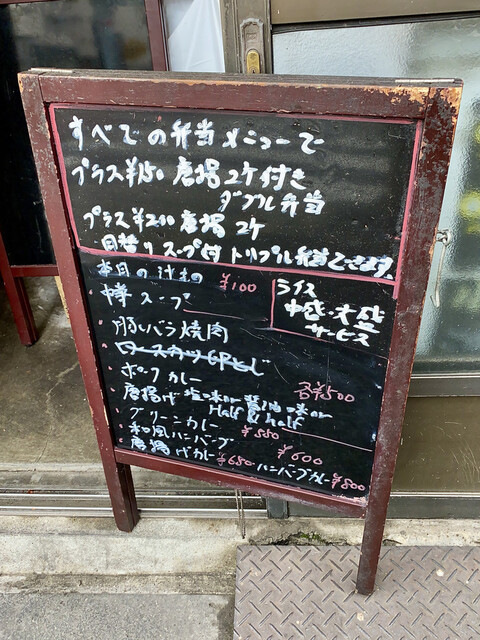 すべての弁当メニューで
プラス¥150 唐揚2ケ付き
ダブル弁当
プラス¥210 唐揚 2ケ
日替りスープ付 トリプル弁当できます。
本日の汁もの ¥100
・スープ
ライス
中盛・大盛
サービス
・豚バラ焼肉
・ロースカツ卵とじ
・ポークカレー
各¥500
・唐揚げ 塩味or醤油味or
Half & half
・グリーンカレー ¥550
・和風ハンバーグ ¥600
・唐揚げカレー ¥680 ハンバーグカレー ¥800